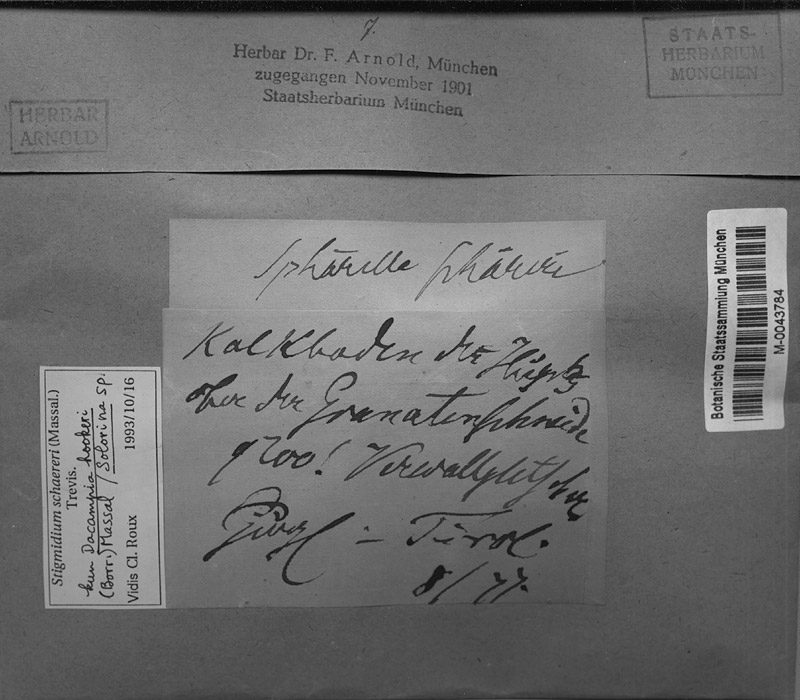 7.
Herbar Dr. F. Arnold, München
zugegangen November 1901
Staatsherbarium München
STAATS-
HERBARIUM
MÜNCHEN
HERBAR
ARNOLD
Kalkboden der
ober der Granatenschneide
! Verwallgletscher
Gurgl - Tirol.
8/77.
Stigmidium schaereri (Massal.)
Trevis.
kum Dacampia hookeri
(Borr.) Massal / Solorina sp.
Vidis Cl. Roux 1993/10/16
Botanische Staatssammlung München
M-0043784